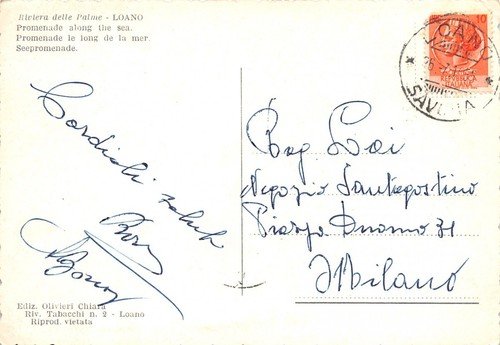 Riviera delle Palme - LOANO
Promenade along the sea.
Promenade le long de la mer.
Seepromenade.
10
LOANO
SAVONA
Cordiali saluti
Rag.
Negozio Santagostino
Piazza Duomo 31
Milano
Ediz. Olivieri Chiara
Riv. Tabacchi n. 2 - Loano
Riprod. vietata